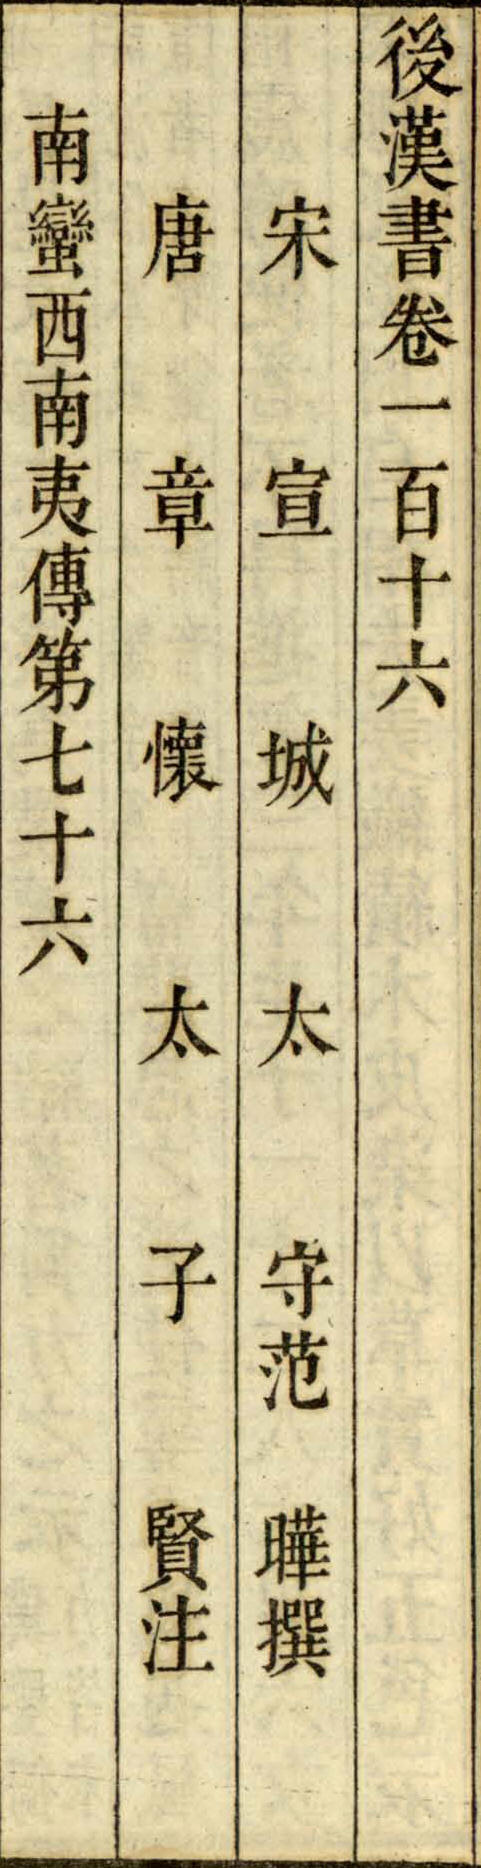 後漢書卷一百十六
宋宣城太守范曄撰
唐章懷太子賢注
南蠻西南夷傳第七十六